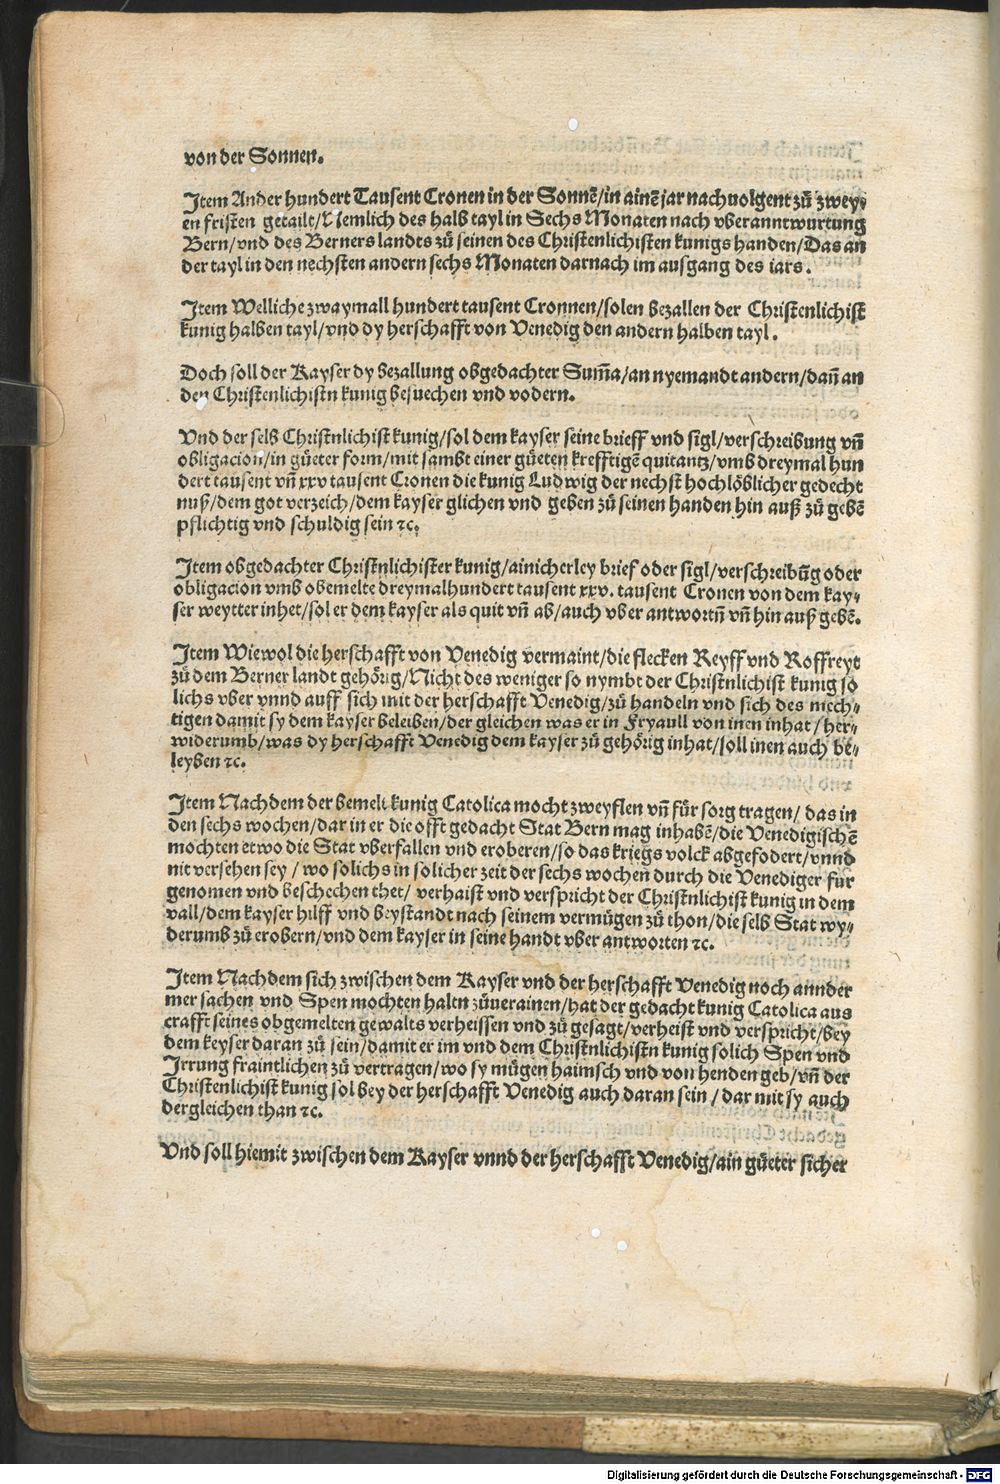 von der Sonnen.
Item Ander hundert Tausent Cronen in der Sonnē/in ainē jar nachuolgent zů zwey⸗
en fristen getailt/Nemlich des halb tayl in Sechs Monaten nach vberanntwurtung
Bern/vnd des Berners landts zů seinen des Christenlichisten kunigs handen/Das an
der tayl in den nechsten andern sechs Monaten darnach im ausgang des iars.
Item Welliche zwaymall hundert tausent Cronnen/solen bezallen der Christenlichist
kunig halben tayl/vnd dy herschafft von Venedig den andern halben tayl.
Doch soll der Kayser dy bezallung obgedachter Sum̄a/an nyemandt andern/dan̄ an
den Christenlichistn kunig besuechen vnd vodern.
Vnd der selb Christnlichist kunig/sol dem kayser seine brieff vnd sigl/verschreibung vn̄
obligacion/in gůeter form/mit sambt einer gůeten krefftigē quitantz/vmb dreymal hun
dert tausent vn̄ xxv tausent Cronen die kunig Ludwig der nechst hochlöblicher gedecht
nuß/dem got verzeich/dem kayser glichen vnd geben zů seinen handen hin auß zů gebē
pflichtig vnd schuldig sein ꝛc.
Item obgedachter Christnlichister kunig/ainicherley brief oder sigl/verschreibūg oder
obligacion vmb obemelte dreymalhundert tausent xxv. tausent Cronen von dem kay⸗
ser weytter inhet/sol er dem kayser als quit vn̄ ab/auch vber antwortn̄ vn̄ hin auß gebē.
Item Wiewol die herschafft von Venedig vermaint/die flecken Reyff vnd Roffreyt
zů dem Berner landt gehörig/Nicht des weniger so nymbt der Christnlichist kunig so
lichs vber vnnd auff sich mit der herschafft Venedig/zů handeln vnd sich des mech⸗
tigen damit sy dem kayser beleiben/der gleichen was er in Fryaull von inen inhat/her⸗
widerumb/was dy herschafft Venedig dem kayser zů gehörig inhat/soll inen auch be⸗
leyben ꝛc.
Item Nachdem der bemelt kunig Catolica mocht zweyflen vn̄ für sorg tragen/ das in
den sechs wochen/dar in er die offt gedacht Stat Bern mag inhabē/die Venedigischē
mochten etwo die Stat vberfallen vnd eroberen/so das kriegs volck abgefodert/vnnd
nit versehen sey / wo solichs in solicher zeit der sechs wochen durch die Venediger für
genomen vnd beschechen thet/ verhaist vnd verspricht der Christnlichist kunig in dem
vall/dem kayser hilff vnd beystandt nach seinem vermügen zů thon/die selb Stat wy⸗
derumb zů erobern/vnd dem kayser in seine handt vber antworten ꝛc.
Item Nachdem sich zwischen dem Kayser vnd der herschafft Venedig noch annder
mer sachen vnd Spen mochten haltn zůuerainen/hat der gedacht kunig Catolica aus
crafft seines obgemelten gewalts verheissen vnd zů gesagt/verheist vnd verspricht/bey
dem keyser daran zů sein/damit er im vnd dem Christnlichistn kunig solich Spen vnd
Irrung fraintlichen zů vertragen/wo sy mügen haimsch vnd von henden geb/vn̄ der
Christenlichist kunig sol bey der herschafft Venedig auch daran sein / dar mit sy auch
dergleichen than ꝛc.
Vnd soll hiemit zwischen dem Kayser vnnd der herschafft Venedig/ain gůeter sicher
Digitalisierung gefördert durch die Deutsche Forschungsgemeinschaft - DFG